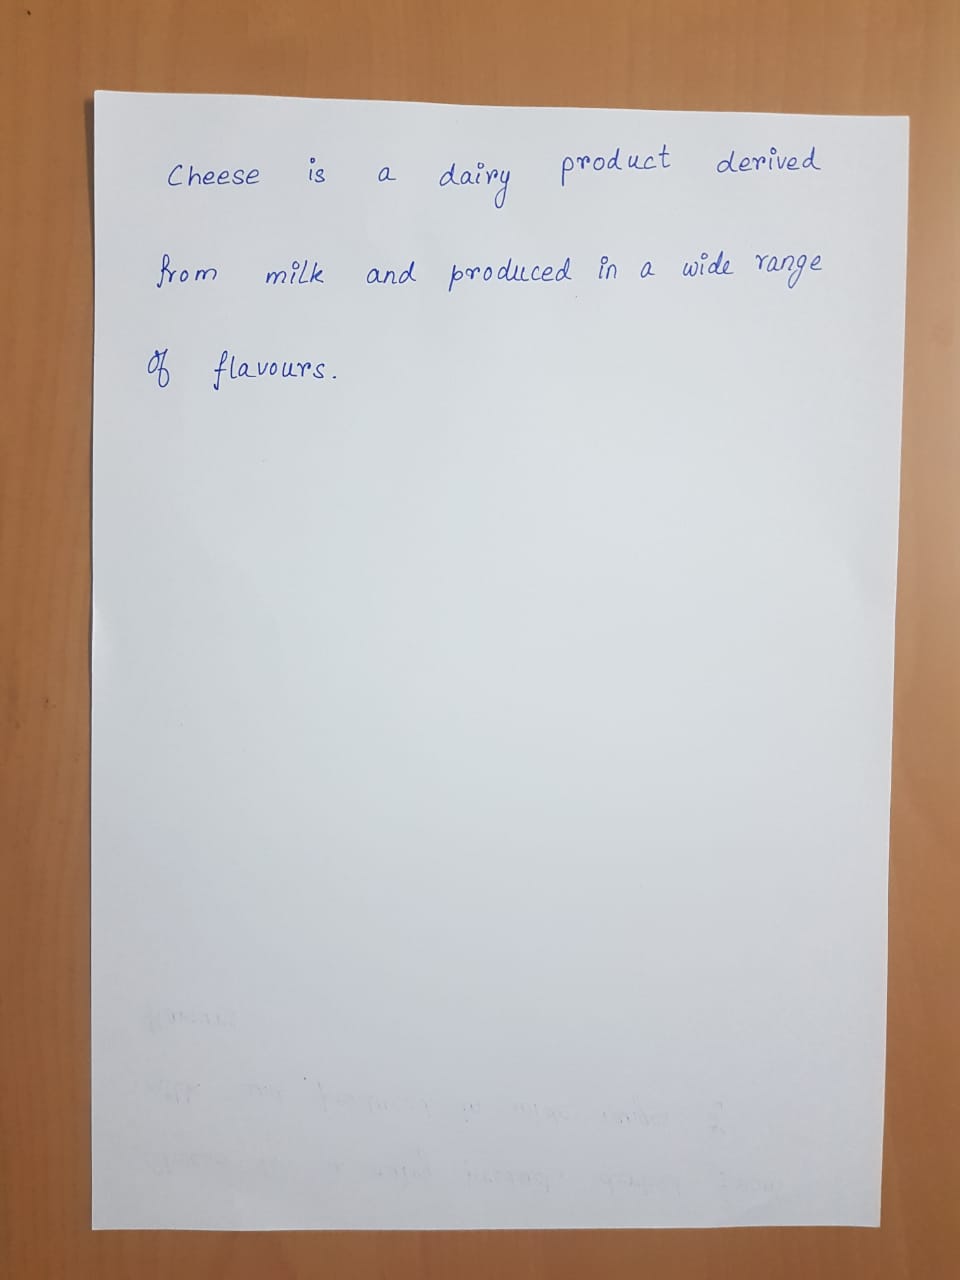 Cheese is a dairy product derived
from milk and produced in a wide range
of flavours.